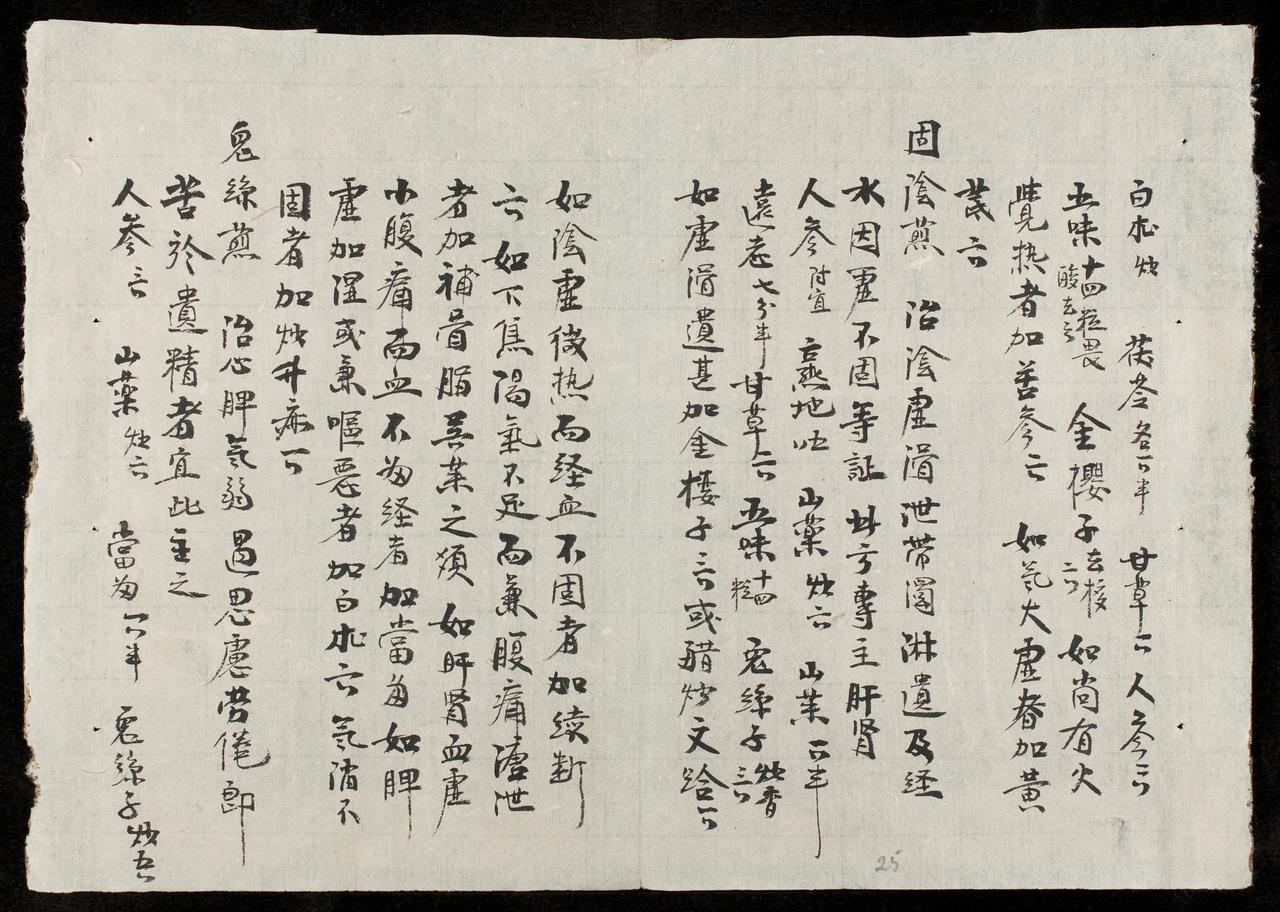 白朮炒 茯苓各一錢半 甘草一錢 人參二三錢
五味十四粒畏酸去之 金櫻子去核二錢 如尚有火
覺热者加苦參二錢 如氣大虛者加黄
芪二錢
固陰煎 治陰虛滑泄帶濁淋遺及経
水因虛不固等証 此方專主肝肾
人參隨宜 熟地 山藥炒二錢 山茱一錢半
遠志七分半 甘草二錢 五味十四粒 兎絲子炒香三錢
如虛滑遺甚加金櫻子三錢或醋炒文蛤一錢
如陰虛微热而経血不固者加続斷
二錢 如下焦陽氣不足而兼腹痛溏泄
者加補骨脂吳茱之類 如肝肾血虛
小腹痛而血不歸経者加當歸 如脾
虛加湿或兼嘔惡者加白朮二錢 氣陷不
固者加炒升麻一錢
兎絲煎 治心脾氣弱遇思慮勞倦即
苦於遺精者宜此主之
人參三錢 山藥炒二錢 當歸一錢半 兎絲子炒五